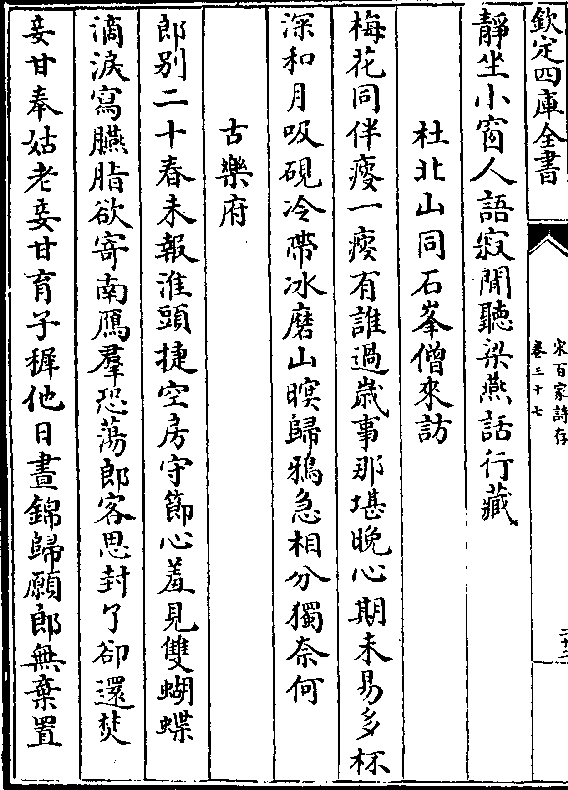 欽定四庫全書
宋百家詩存
卷三十七
靜坐小窗人語寂閒聽梁燕話行藏
杜北山同石峯僧來訪
梅花同伴瘦一瘦有誰過歲事那堪晚心期未易多杯
深和月吸硯冷帶冰磨山暝歸鴉急相分獨奈何
古樂府
郎别二十春未報淮頭捷空房守節心羞見雙蝴蝶
滴淚寫臙脂欲寄南鴈羣恐蕩郎客思封了卻還焚
妾甘奉姑老妾甘育子穉他日晝錦歸願郎無棄置